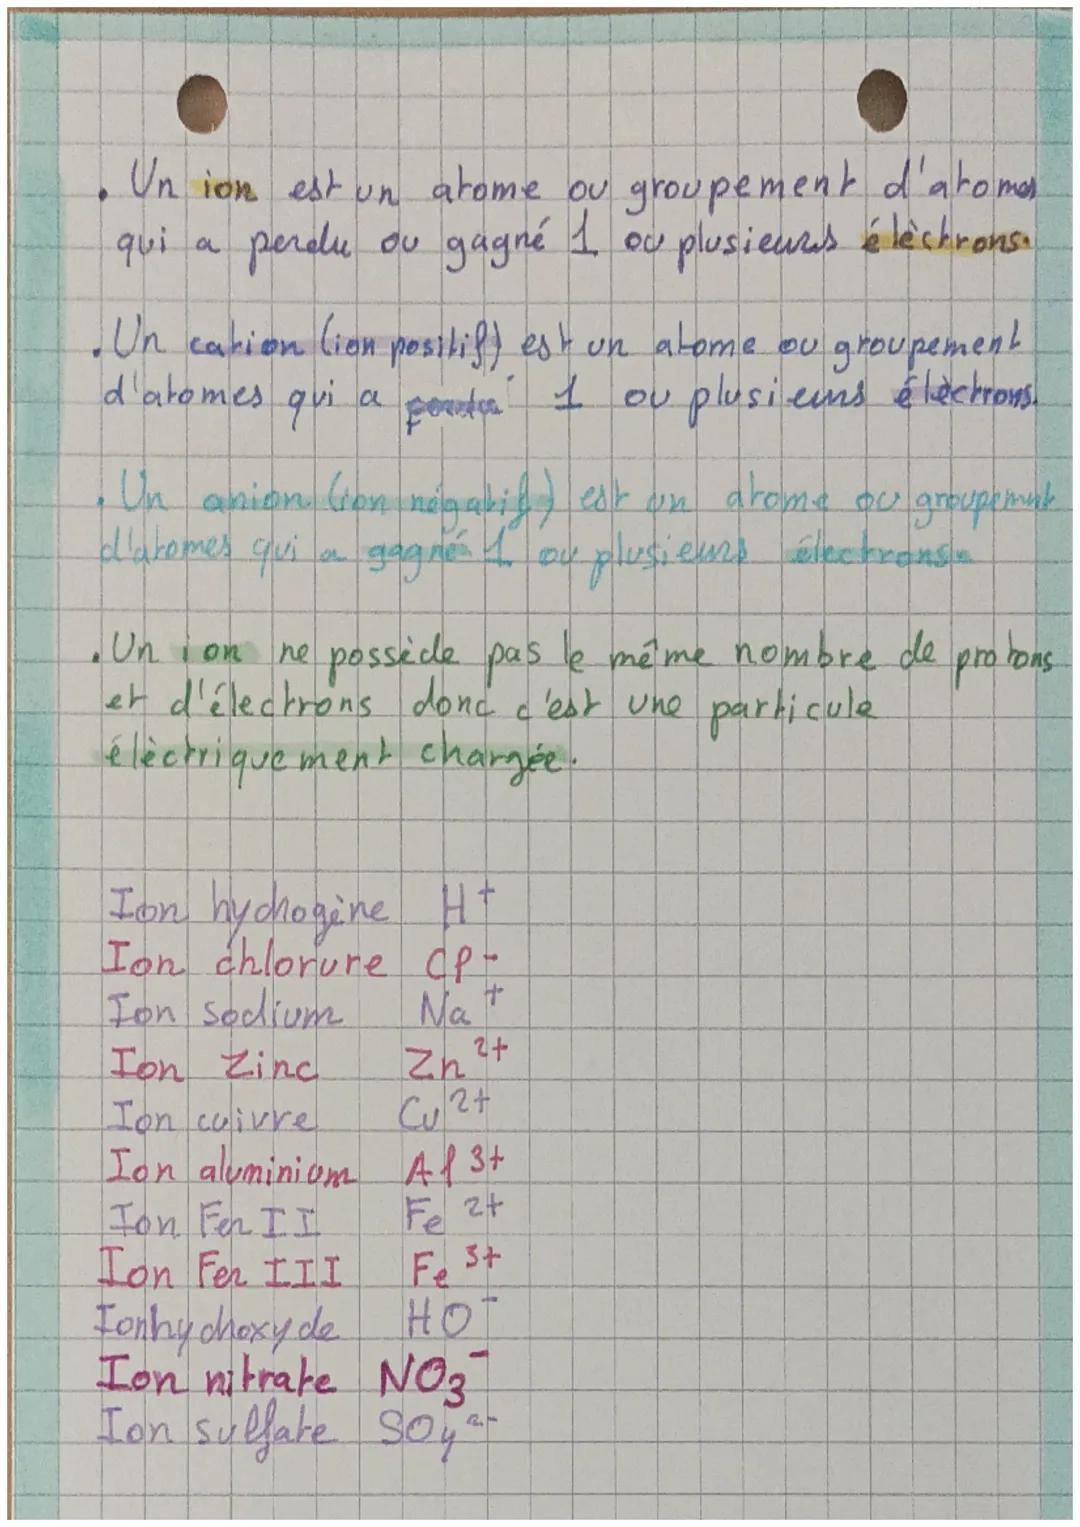 . Un ion est un atome ou groupement d'atomes
qui a perdu ou gagné 1 ou plusieurs élèctrons.
. Un cation (ion positif) est un atome ou groupement
d'atomes qui a perdu 1 ou plusieurs élèctrons.
. Un anion (ion négatif) est un atome ou groupement
d'atomes qui a gagné 1 ou plusieurs électrons.
. Un ion ne possède pas le même nombre de protons
et d'électrons donc c'est une particule
élèctriquement chargée.
Ion hydrogène H⁺
Ion chlorure Cl⁻
Ion sodium Na⁺
Ion Zinc Zn²⁺
Ion cuivre Cu²⁺
Ion aluminium Al³⁺
Ion Fer II Fe²⁺
Ion Fer III Fe³⁺
Ion hydroxyde HO⁻
Ion nitrate NO₃⁻
Ion sulfate SO₄²⁻